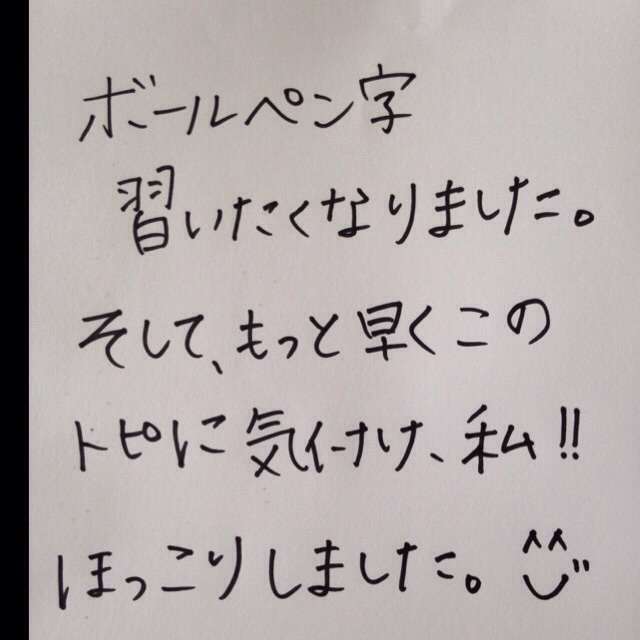 ボールペン字
習いたくなりました。
そして、もっと早くこの
トピに気付け、私!!
ほっこりしました。^^